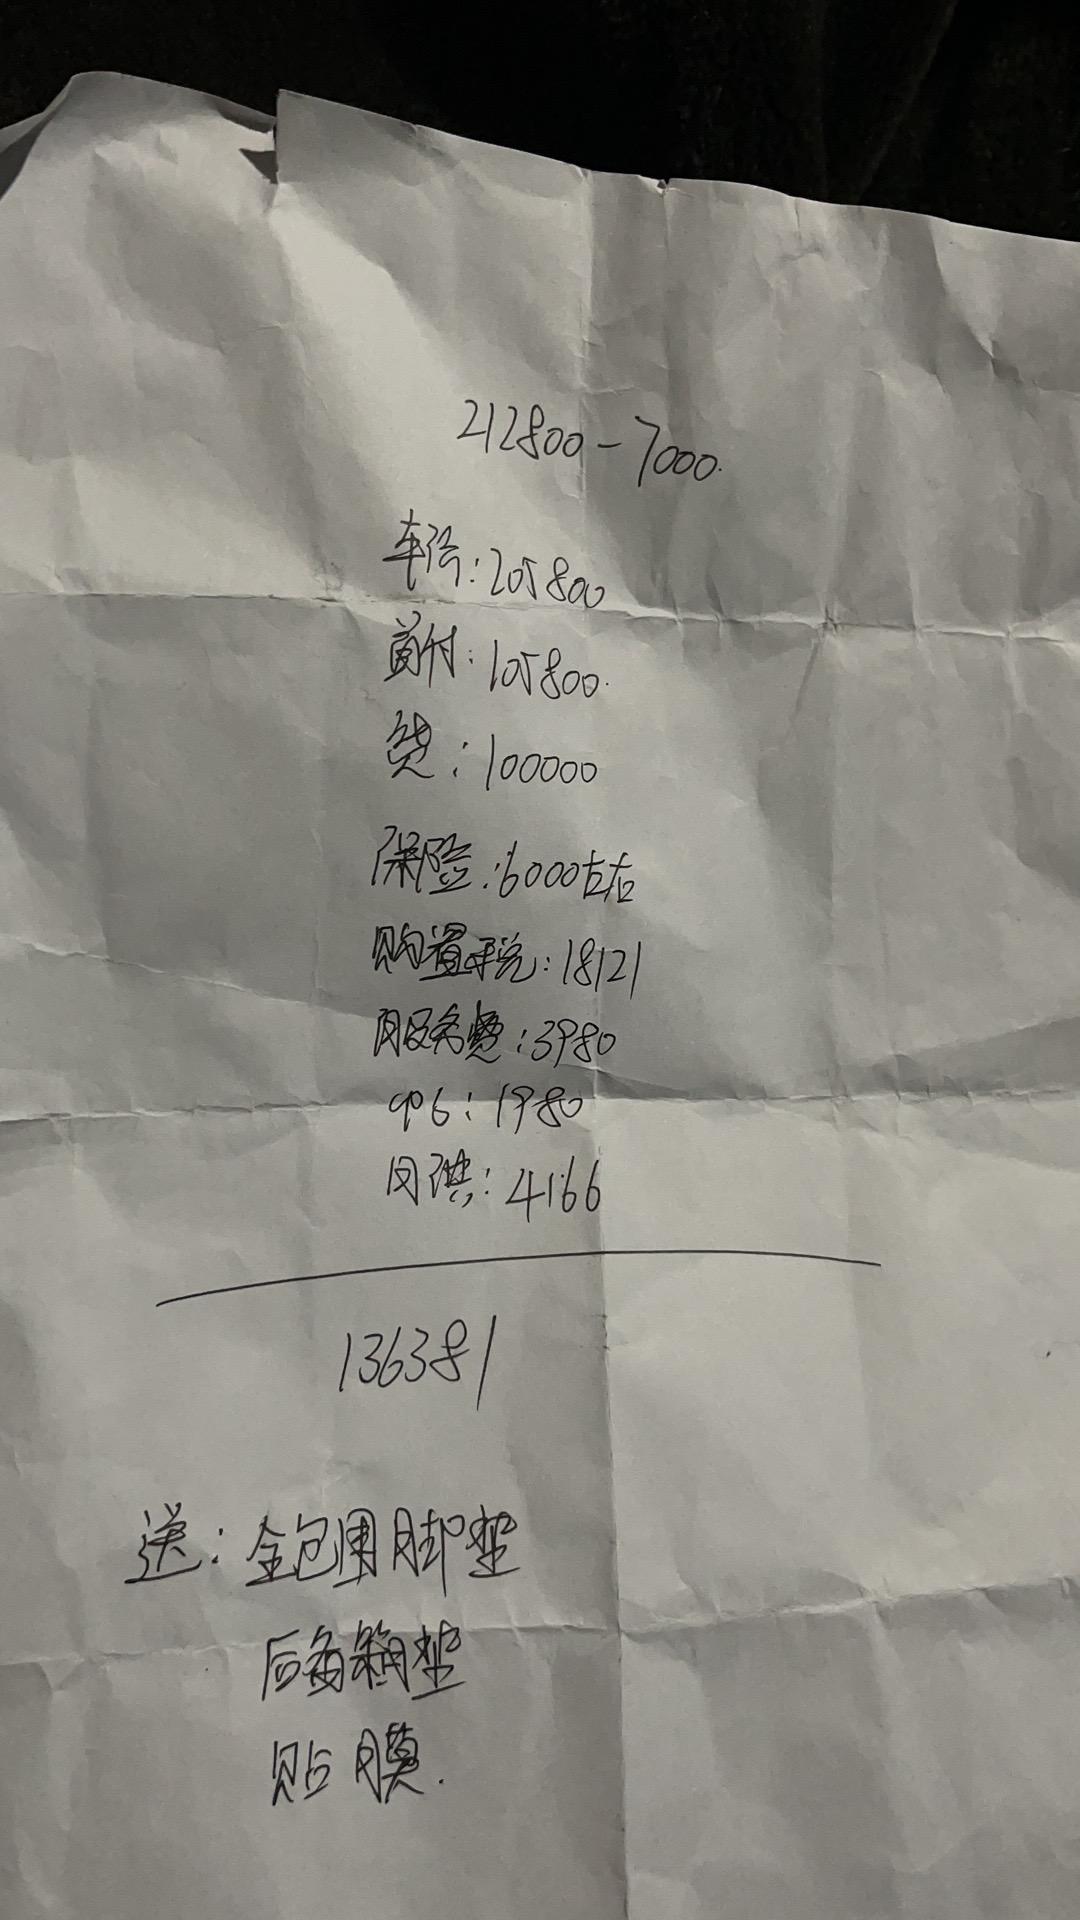 212800-7000.
车价:205800
首付:105800.
贷:100000
保险:6000左右
购置税:18121
服务费:3980
ap6:1980
月供:4166
136381
送:全包围脚垫
后备箱垫
贴膜.